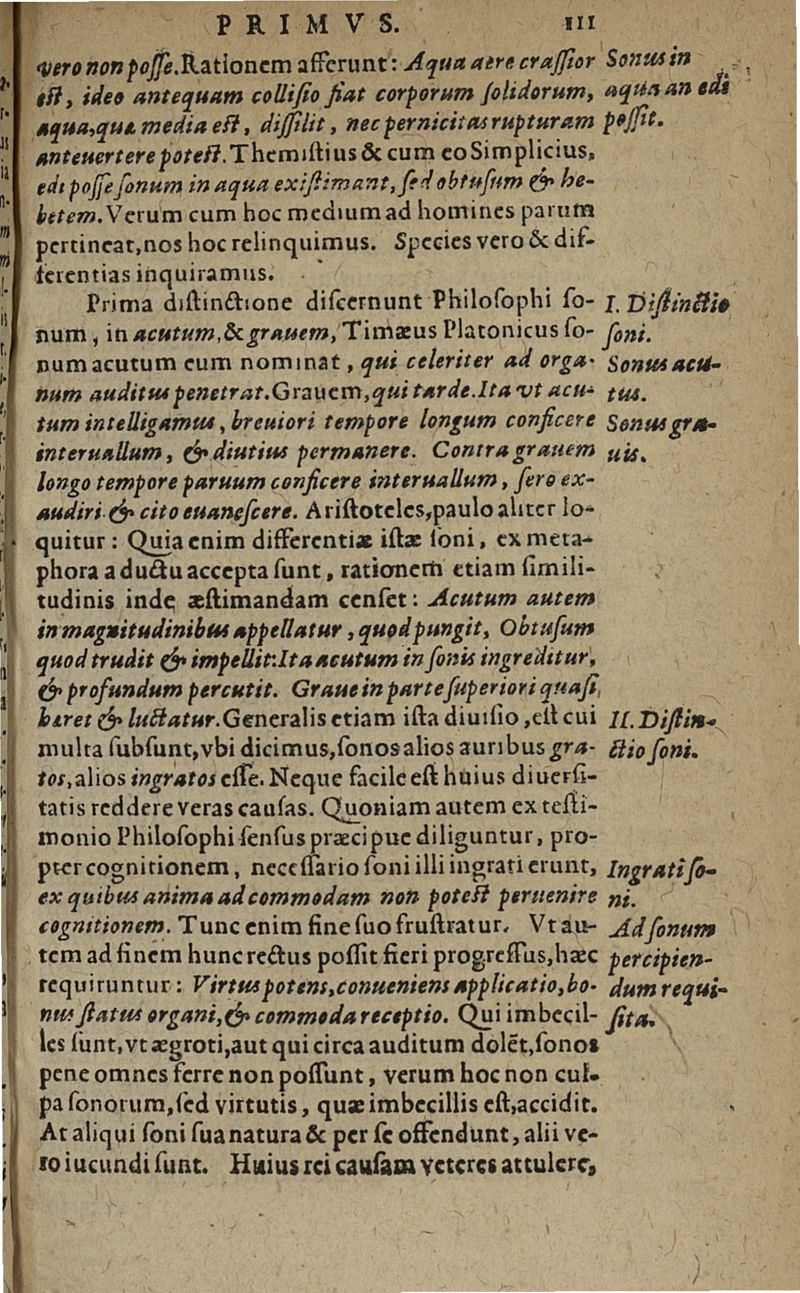 PRIMVS. 111
vero non posse. Rationem afferunt: Aqua aere crassior
est, ideo antequam collisio fiat corporum solidorum,
aqua, quæ media est, dissilit, nec pernicitas rupturam
anteuertere potest. Themistius & cum eo Simplicius,
edi posse sonum in aqua existimant, sed obtusum & he-
betem. Verum cum hoc medium ad homines parum
pertineat, nos hoc relinquimus. Species vero & dif-
ferentias inquiramus.
Prima distinctione discernunt Philosophi so-
num, in acutum, & grauem, Timæus Platonicus so-
num acutum eum nominat, qui celeriter ad orga-
num auditus penetrat. Grauem, qui tarde. Ita vt acu-
tum intelligamus, breuiori tempore longum conficere
interuallum, & diutius permanere. Contra grauem
longo tempore paruum conficere interuallum, sero ex-
audiri & cito euanescere. Aristoteles, paulo aliter lo-
quitur: Quia enim differentiæ istæ soni, ex meta-
phora a ductu accepta sunt, rationem etiam simili-
tudinis inde æstimandam censet: Acutum autem
in magnitudinibus appellatur, quod pungit, Obtusum
quod trudit & impellit: Ita acutum in sonis ingreditur,
& profundum percutit. Graue in parte superiori quasi
hæret & luctatur. Generalis etiam ista diuisio, est cui
multa subsunt, vbi dicimus, sonos alios auribus gra-
tos, alios ingratos esse. Neque facile est huius diuersi-
tatis reddere veras causas. Quoniam autem ex testi-
monio Philosophi sensus præcipue diliguntur, pro-
pter cognitionem, necessario soni illi ingrati erunt,
ex quibus anima ad commodam non potest peruenire
cognitionem. Tunc enim fine suo frustratur. Vt au-
tem ad finem hunc rectus possit fieri progressus, hæc
requiruntur: Virtus potens, conueniens applicatio, bo-
nus status organi, & commoda receptio. Qui imbecil-
les sunt, vt ægroti, aut qui circa auditum dolẽt, sonos
pene omnes ferre non possunt, verum hoc non cul-
pa sonorum, sed virtutis, quæ imbecillis est, accidit.
At aliqui soni sua natura & per se offendunt, alii ve-
ro iucundi sunt. Huius rei causam veteres attulere,
Sonus in
aqua an edi
possit.
I. Distinctio
soni.
Sonus acu-
tus.
Sonus gra-
uis.
II. Distin-
ctio soni.
Ingrati so-
ni.
Ad sonum
percipien-
dum requi-
sita.